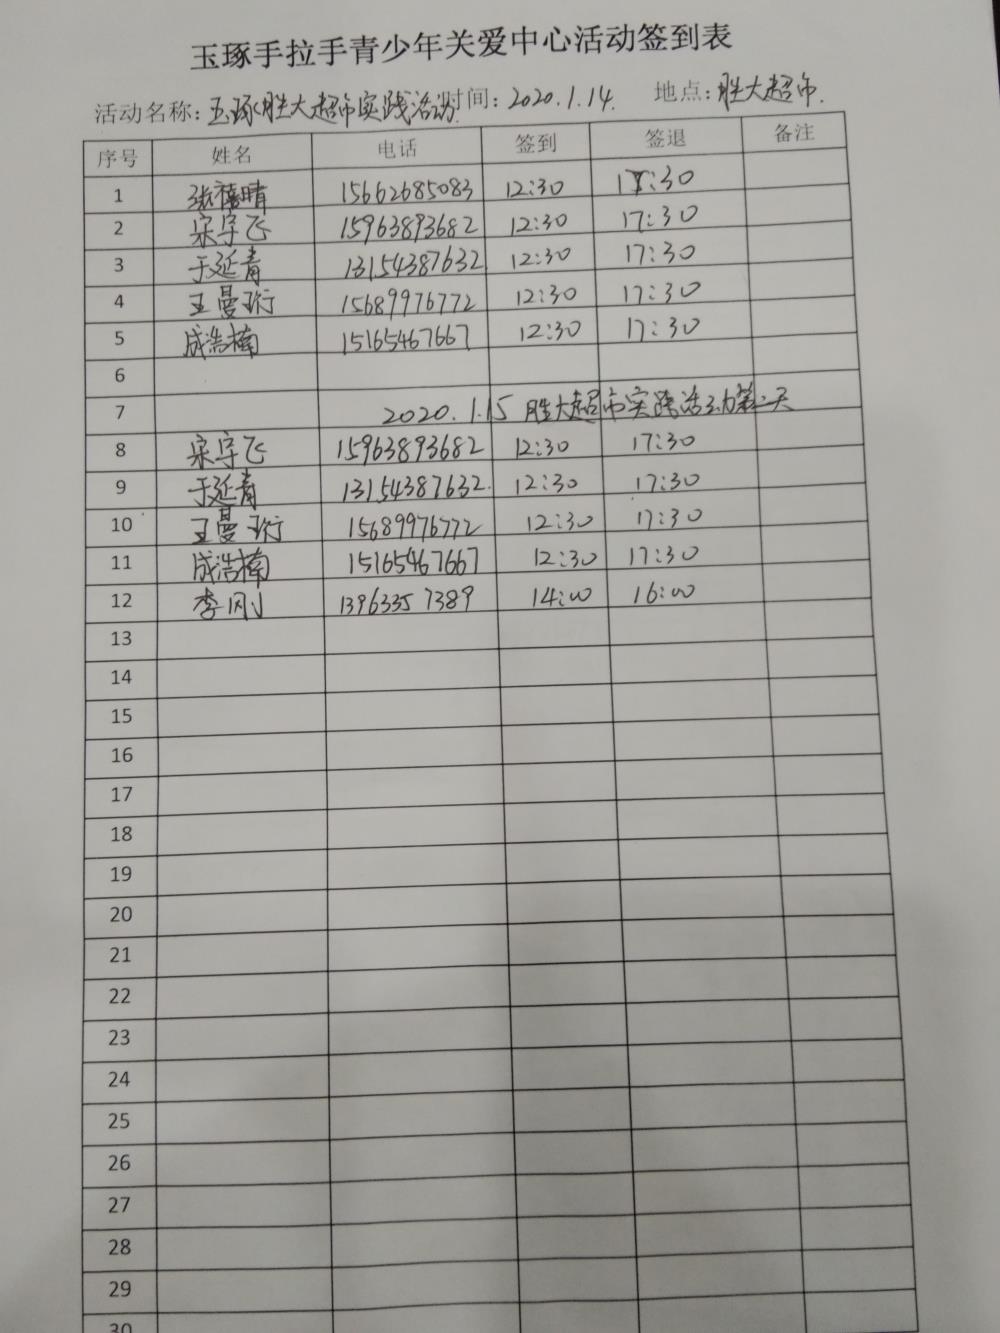 玉琢手拉手青少年关爱中心活动签到表
活动名称：玉琢胜大超市实践活动 时间：2020.1.14. 地点：胜大超市.
序号 姓名 电话 签到 签退 备注
1 张禧晴 15662685083 12:30 17:30
2 宋宇飞 15963893682 12:30 17:30
3 于延青 13154387632 12:30 17:30
4 王曼珩 15689976772 12:30 17:30
5 成浩楠 15165467667 12:30 17:30
6
7 2020.1.15 胜大超市实践活动第二天
8 宋宇飞 15963893682 12:30 17:30
9 于延青 13154387632. 12:30 17:30
10 王曼珩 15689976772 12:30 17:30
11 成浩楠 15165467667 12:30 17:30
12 李刚 13963357389 14:00 16:00
13
14
15
16
17
18
19
20
21
22
23
24
25
26
27
28
29
30